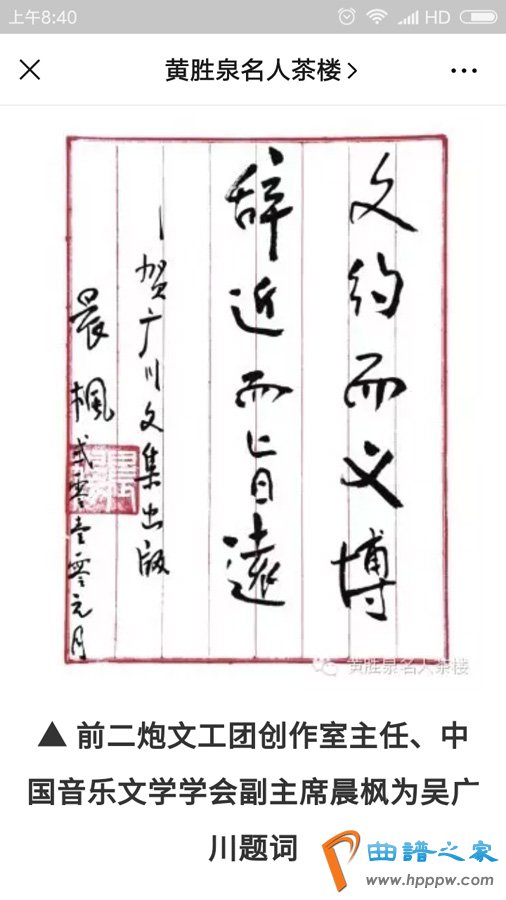 上午8:40
HD
黄胜泉名人茶楼
文约而义博
辞近而旨遠
贺广川文集出版
晨楓
弍零壹零元月
黄胜泉名人茶楼
▲ 前二炮文工团创作室主任、中
国音乐文学学会副主席晨枫为吴广
川题词
曲谱之家
www.hpppw.com